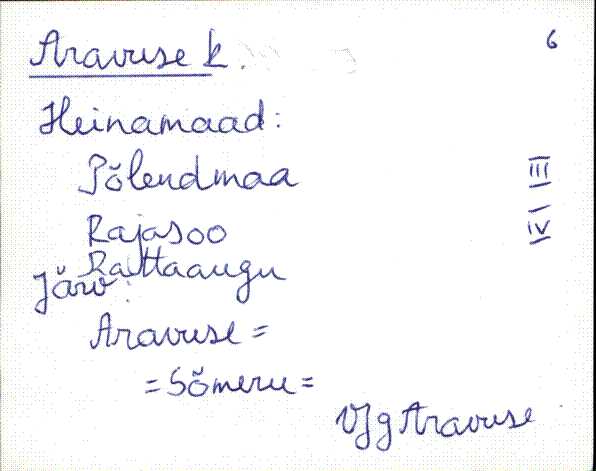 Aravuse k.
6
Heinamaad:
Põlendmaa III
Rajasoo IV
Rattaaugu
Järv:
Aravuse =
= Sõmeru =
VJg Aravuse